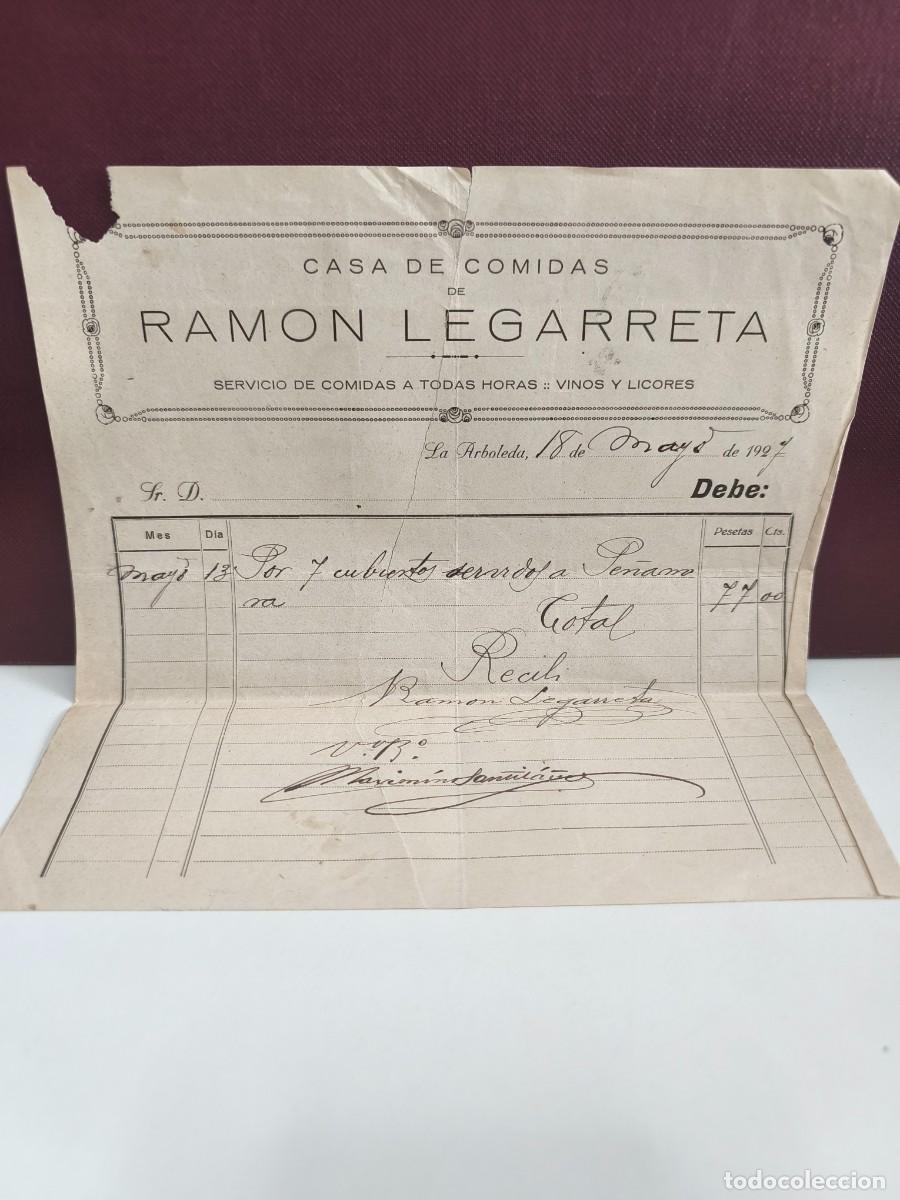 CASA DE COMIDAS
DE
RAMON LEGARRETA
SERVICIO DE COMIDAS A TODAS HORAS :: VINOS Y LICORES
La Arboleda, 18 de Mayo de 1927
Sr. D. Debe:
Mes Día Pesetas Cts.
Mayo 13 Por 7 cubiertos servidos a Peñamo
ra 77 00
Total
Recibi
Ramon Legarreta
V.º B.º
todocoleccion